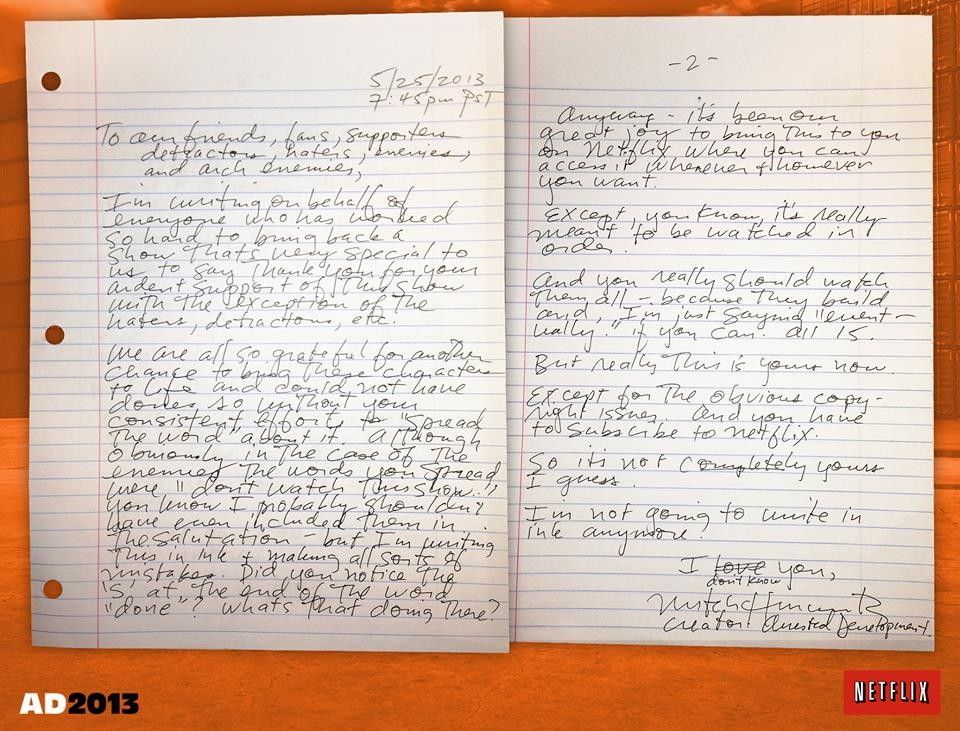 5/25/2013
7:45pm PST
To our friends, fans, supporters
detractors, haters, enemies,
and arch enemies,
I'm writing on behalf of
everyone who has worked
so hard to bring back a
show that's very special to
us to say thank you for your
ardent support of this show
with the exception of the
haters, detractors, etc.
We are all so grateful for another
chance to bring these characters
to life and could not have
dones so without your
consistent efforts to "spread
the word" about it. Although
obviously in the case of the
enemies the words you spread
were "don't watch this show."
you know I probably shouldn't
have even included them in
the salutation - but I'm writing
this in ink & making all sorts of
mistakes. Did you notice the
'S' at the end of the word
"done"? What's that doing there?
-2-
Anyway - it's been our
great joy to bring this to you
on Netflix where you can
access it whenever & however
you want.
Except, you know, it's really
meant to be watched in
order.
And you really should watch
them all - because they build
and, I'm just saying "event-
ually." if you can. all 15.
But really this is yours now.
Except for the obvious copy-
right issues. And you have
to subscribe to Netflix.
So it's not completely yours
I guess.
I'm not going to write in
ink anymore.
I love you,
don't know
Mitch Hurwitz
Creator: Arrested Development.
AD2013
NETFLIX